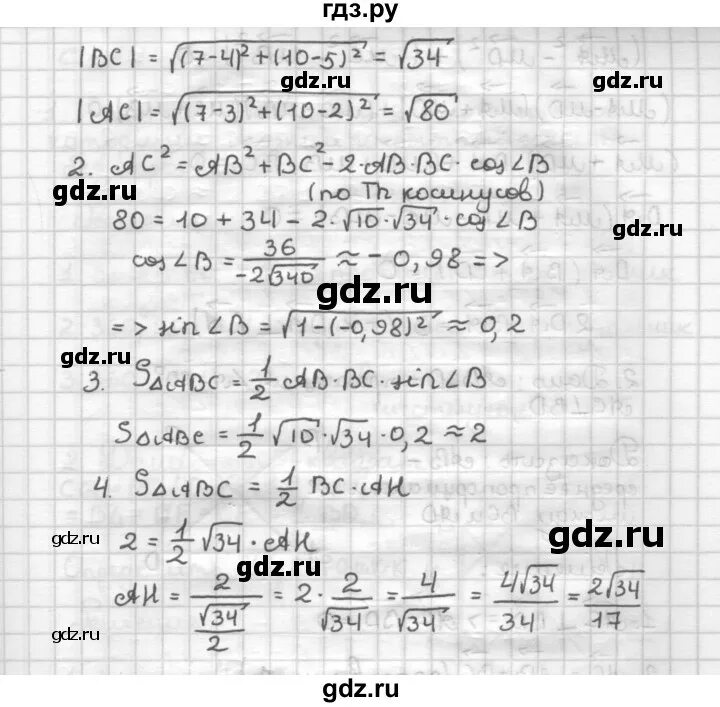 гдз.ру
|BC| = √((7-4)² + (10-5)²) = √34
gdz.ru gdz.ru
|AC| = √((7-3)² + (10-2)²) = √80
2. AC² = AB² + BC² - 2·AB·BC·cos∠B
gdz.ru gdz.ru
(по Th косинусов)
80 = 10 + 34 - 2·√10·√34·cos∠B
gdz.ru
cos∠B = 36/(-2√340) ≈ -0,98 =>
gdz.ru
=> sin∠B = √(1-(-0,98)²) ≈ 0,2
gdz.ru
3. S△ABC = 1/2 AB·BC·sin∠B
gdz.ru
S△ABC = 1/2 √10·√34·0,2 ≈ 2
gdz.ru
4. S△ABC = 1/2 BC·AH
gdz.ru gdz.ru
2 = 1/2 √34·AH
gdz.ru
AH = 2/(√34/2) = 2·2/√34 = 4/√34 = 4√34/34 = 2√34/17
gdz.ru gdz.ru
gdz.ru